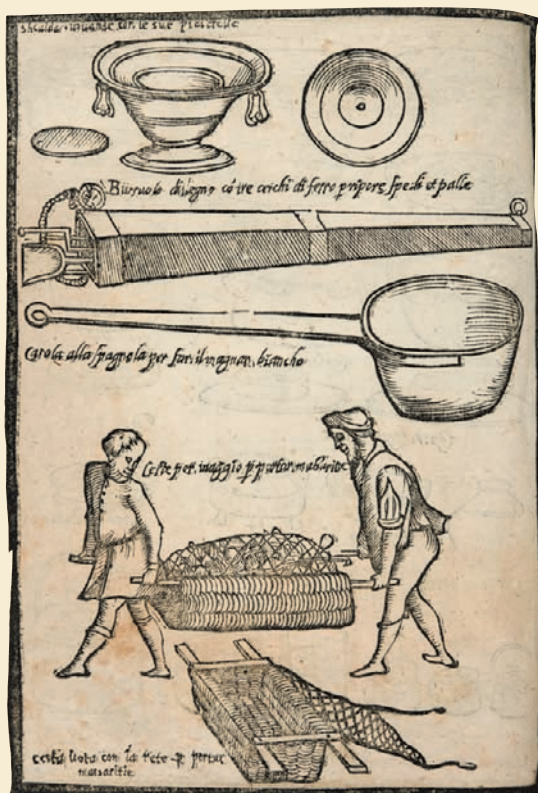 Scalda vivande con le sue piastrelle
Bussolo di legno cō tre cerchi di ferro p riporre spedi et palle
Cazola alla spagnola per far il magnar biancho
Ceste per viaggio p portar massaritie
cesta vota con la rete p portar
massaritie